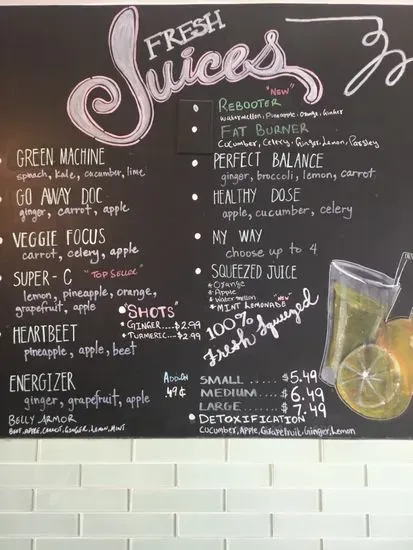 FRESH
Juices
GREEN MACHINE
spinach, kale, cucumber, lime
GO AWAY DOC
ginger, carrot, apple
VEGGIE FOCUS
carrot, celery, apple
SUPER-C "TOP SELLER"
lemon, pineapple, orange,
grapefruit, apple
HEARTBEET
pineapple, apple, beet
ENERGIZER
ginger, grapefruit, apple
BELLY ARMOR
BEET, APPLE, CARROT, GINGER, LEMON, MINT
"SHOTS"
GINGER....$2.99
TURMERIC...$2.99
ADD ON
.49¢
REBOOTER "NEW"
Watermelon, Pineapple, Orange, Ginger
FAT BURNER
Cucumber, Celery, Ginger, Lemon, Parsley
PERFECT BALANCE
ginger, broccoli, lemon, carrot
HEALTHY DOSE
apple, cucumber, celery
MY WAY
choose up to 4
SQUEEZED JUICE
*Orange
*Apple
*Watermelon "NEW"
*MINT LEMONADE
100%
Fresh Squeezed
SMALL ..... $5.49
MEDIUM .... $6.49
LARGE ..... $7.49
DETOXIFICATION
Cucumber, Apple, Grapefruit, Ginger, Lemon